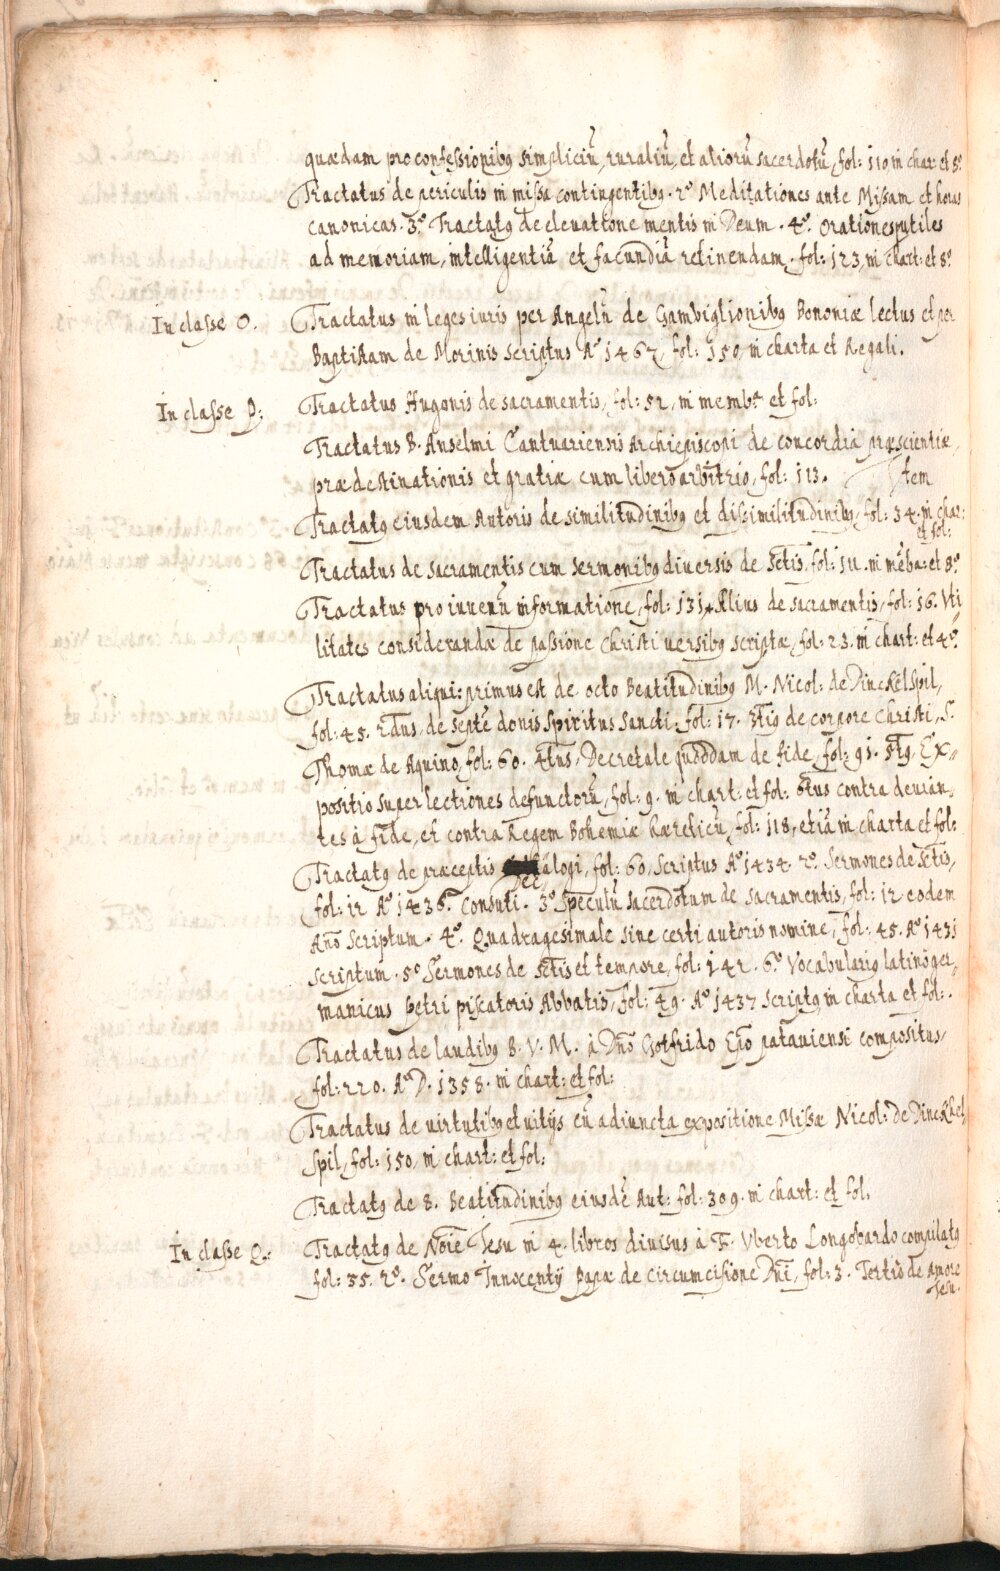 quædam pro confessionibꝰ simpliciū, ruraliū, et alioru sacerdotū, fol: 110, in char: et 8º
Tractatus de periculis in missa contingentibꝰ. 2º Meditationes ante Missam et horas
canonicas. 3º. Tractatꝰ de eleuatione mentis in Deum. 4º. orationes putiles
ad memoriam, intelligentiā et facundiā retinendam. fol: 123, in chart: et 8º
In classe O. Tractatus in leges iuris per Angelū de Gambiglionibꝰ Bononiæ lectus et per
Baptistam de Morinis scriptus Aº 1467, fol: 150, in charta et Regali.
In classe P: Tractatus Hugonis de sacramentis, fol: 52, in memb: et fol:
Tractatus B. Anselmi Cantuariensis Archiepiscopi de concordia præscientiæ,
prædestinationis et gratiæ cum libero arbitrio, fol: 113. Item
Tractatꝰ eiusdem Autoris de similitudinibꝰ et dissimilitudinibꝰ, fol: 34. in char:
et fol:
Tractatus de sacramentis cum sermonibꝰ diuersis de Sctis, fol: 111. in mēba: et 8º
Tractatus pro iuuenū informatione, fol: 131. Alius de sacramentis, fol: 16. Vti
litates considerandæ de passione Christi uersibꝰ scriptæ, fol: 23. in chart: et 4º.
Tractatus aliqui: primus est de octo Beatitudinibꝰ M. Nicol: de Dinckelspil,
fol: 45. 2dus, de septē donis Spiritus Sancti. fol: 17. 3tiꝰ de corpore Christi, S.
Thomæ de Aquino, fol: 60. 4tus, Decretale quoddam de fide, fol: 91. 5tꝰ. Ex=
positio super lectiones defunctorū, fol: 9. in chart: et fol: 6tus contra deuian,,
tes à fide, et contra Regem Bohemiæ hæreticū, fol: 118, etiā in charta et fol:
Tractatꝰ de præceptis Decalogi, fol: 60, scriptus Aº 1434. 2º. Sermones de Sctis,
fol: 12 Aº 1436. Consuti. 3º Speculū sacerdotum de sacramentis, fol: 12 eodem
Año scriptum. 4º. Quadragesimale sine certi autoris nomine, fol: 45. Aº 1431
scriptum. 5º Sermones de Sctis et tempore, fol: 142. 6º Vocabulariꝰ latino ger=
manicus Petri piscatoris Abbatis, fol: 49. Aº 1437 scriptꝰ in charta et fol:.
Tractatus de laudibꝰ B. V. M. à Dño Gotfrido Epo patauiensi compositus,
fol: 220. Aº D. 1358. in chart: et fol:
Tractatus de uirtutibꝰ et uitijs cū adiuncta expositione Missæ Nicol: de Dinckhel
spil, fol: 150, in chart: et fol:
Tractatꝰ de 8. Beatitudinibꝰ eiusdē Aut: fol: 309. in chart: et fol.
In classe Q.: Tractatꝰ de Noie Jesu in 4. libros diuisus à F. Vberto Longobardo compilatꝰ
fol: 35. 2º. Sermo Innocentij Papæ de circumcisione Dñi, fol: 3. Tertiꝰ de Amore
Jesu.